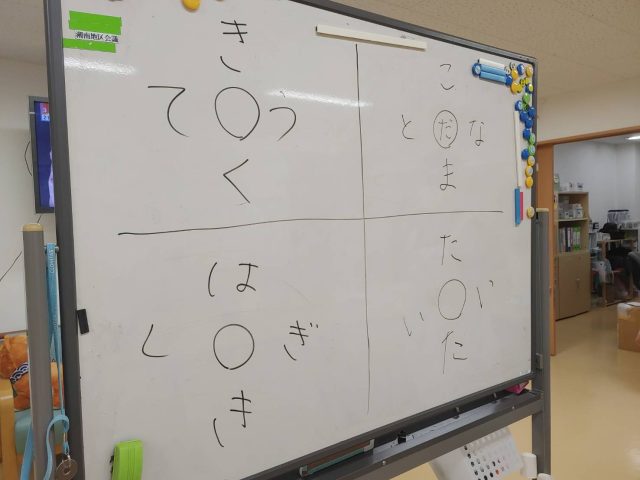 湘南地区会議
き
て○う
く
こ
とだな
ま
は
し○ぎ
き
た
い○い
た